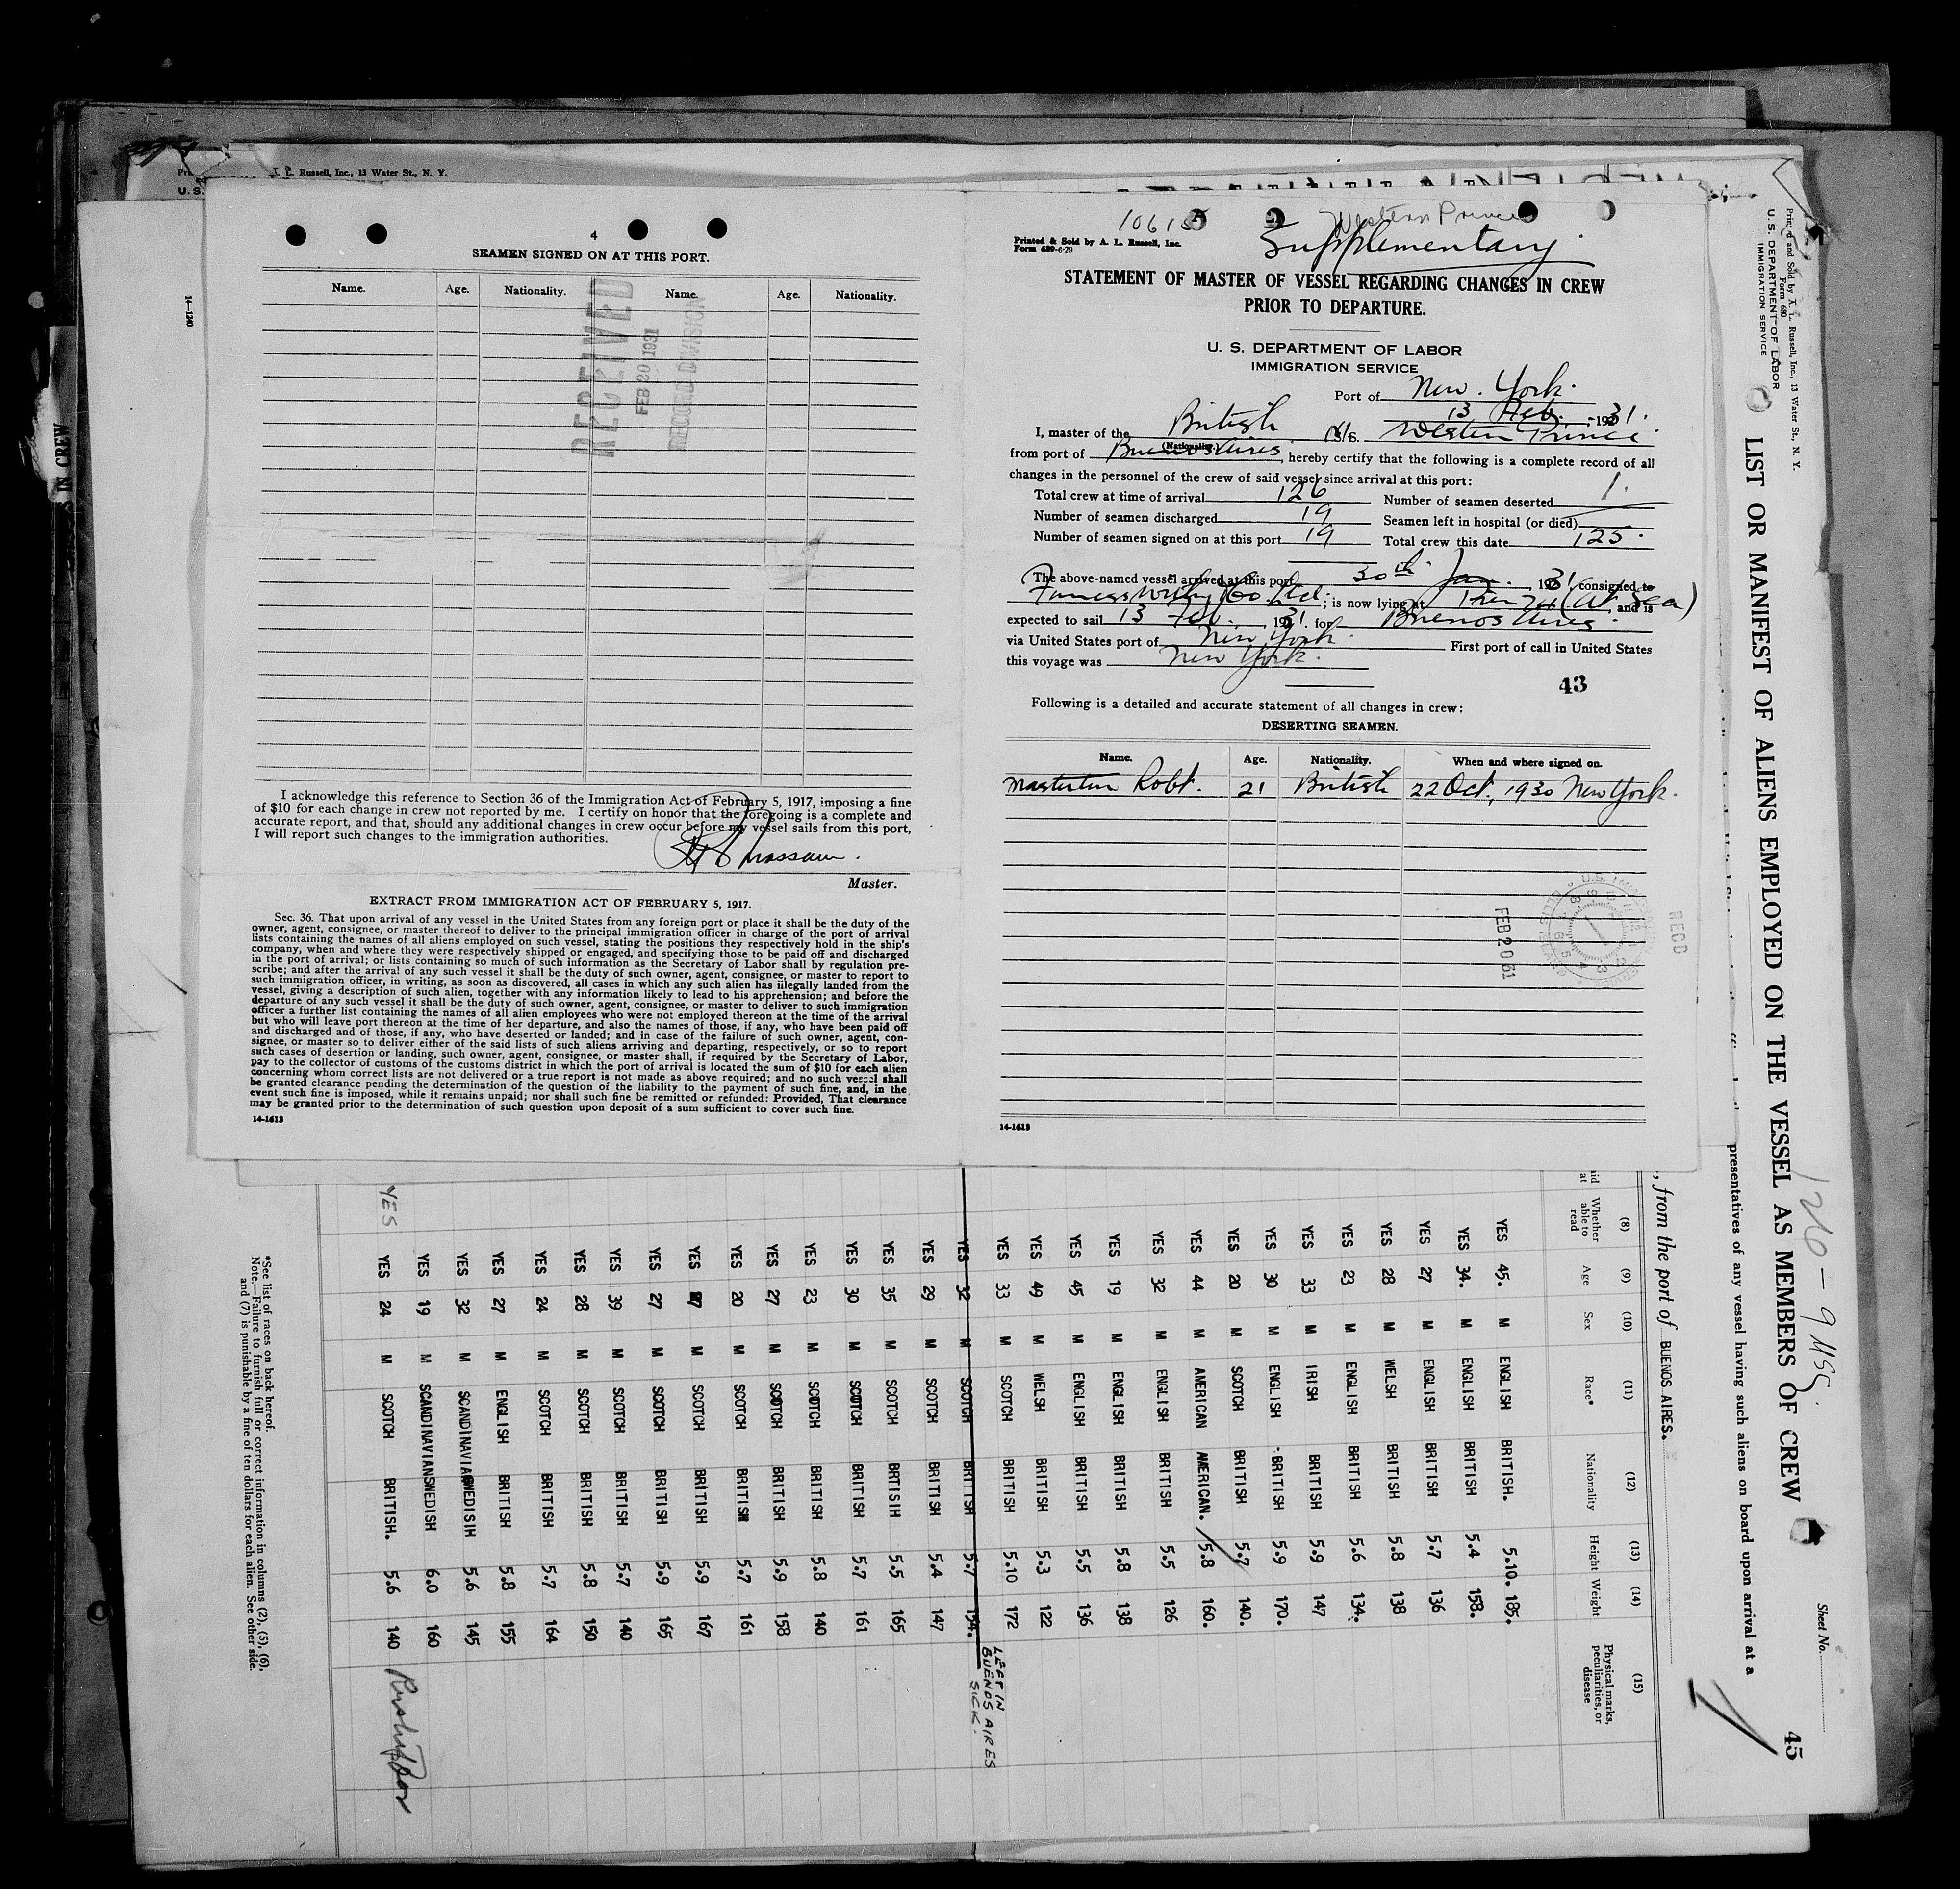 Russell, Inc., 13 Water St., N. Y.
U. S.
14—1240
IN CREW
4
SEAMEN SIGNED ON AT THIS PORT.
Name. Age. Nationality. Name. Age. Nationality.
RECEIVED
FEB 20 1931
RECORD DIVISION
I acknowledge this reference to Section 36 of the Immigration Act of February 5, 1917, imposing a fine
of $10 for each change in crew not reported by me. I certify on honor that the foregoing is a complete and
accurate report, and that, should any additional changes in crew occur before my vessel sails from this port,
I will report such changes to the immigration authorities.
Master.
EXTRACT FROM IMMIGRATION ACT OF FEBRUARY 5, 1917.
Sec. 36. That upon arrival of any vessel in the United States from any foreign port or place it shall be the duty of the
owner, agent, consignee, or master thereof to deliver to the principal immigration officer in charge of the port of arrival
lists containing the names of all aliens employed on such vessel, stating the positions they respectively hold in the ship's
company, when and where they were respectively shipped or engaged, and specifying those to be paid off and discharged
in the port of arrival; or lists containing so much of such information as the Secretary of Labor shall by regulation pre-
scribe; and after the arrival of any such vessel it shall be the duty of such owner, agent, consignee, or master to report to
such immigration officer, in writing, as soon as discovered, all cases in which any such alien has illegally landed from the
vessel, giving a description of such alien, together with any information likely to lead to his apprehension; and before the
departure of any such vessel it shall be the duty of such owner, agent, consignee, or master to deliver to such immigration
officer a further list containing the names of all alien employees who were not employed thereon at the time of the arrival
but who will leave port thereon at the time of her departure, and also the names of those, if any, who have been paid off
and discharged and of those, if any, who have deserted or landed; and in case of the failure of such owner, agent, con-
signee, or master so to deliver either of the said lists of such aliens arriving and departing, respectively, or so to report
such cases of desertion or landing, such owner, agent, consignee, or master shall, if required by the Secretary of Labor,
pay to the collector of customs of the customs district in which the port of arrival is located the sum of $10 for each alien
concerning whom correct lists are not delivered or a true report is not made as above required; and no such vessel shall
be granted clearance pending the determination of the question of the liability to the payment of such fine, and, in the
event such fine is imposed, while it remains unpaid; nor shall such fine be remitted or refunded: Provided, That clearance
may be granted prior to the determination of such question upon deposit of a sum sufficient to cover such fine.
14-1613
10615 Western Prince
Printed & Sold by A. L. Russell, Inc.
Form 689-6-29
Supplementary
STATEMENT OF MASTER OF VESSEL REGARDING CHANGES IN CREW
PRIOR TO DEPARTURE.
U. S. DEPARTMENT OF LABOR
IMMIGRATION SERVICE
Port of New York.
13 Feb. -1931.
I, master of the British S.S. Western Prince
(Nationality)
from port of Buenos Aires, hereby certify that the following is a complete record of all
changes in the personnel of the crew of said vessel since arrival at this port:
Total crew at time of arrival 126 Number of seamen deserted 1.
Number of seamen discharged 19 Seamen left in hospital (or died)
Number of seamen signed on at this port 19 Total crew this date 125.
The above-named vessel arrived at this port 30th Jan. , 1931, consigned to
Furness Withy & Co. Ltd.; is now lying at (At Sea), and is
expected to sail 13 Feb. , 1931. for Buenos Aires.
via United States port of New York. First port of call in United States
this voyage was New York.
43
Following is a detailed and accurate statement of all changes in crew:
DESERTING SEAMEN.
Name. Age. Nationality. When and where signed on.
Masterton Robt. 21 British 22 Oct., 1930 New York.
FEB 20 31
RECD
14-1613
Printed and Sold by A. L. Russell, Inc., 13 Water St., N. Y.
Form 680
U. S. DEPARTMENT OF LABOR
IMMIGRATION SERVICE
LIST OR MANIFEST OF ALIENS EMPLOYED ON THE VESSEL AS MEMBERS OF CREW
126 - 9 USC.
Sheet No.
45
presentatives of any vessel having such aliens on board upon arrival at a
, from the port of BUENOS AIRES.
(8) (9) (10) (11) (12) (13) (14) (15)
Whether able to read Age Sex Race* Nationality Height Weight Physical marks, peculiarities, or disease
YES 45. M ENGLISH BRITISH. 5.10. 185.
YES 34. M ENGLISH BRITISH 5.4 158.
YES 27 M ENGLISH BRITISH 5.7 136
YES 28 M WELSH BRITISH 5.8 138
YES 23 M ENGLISH BRITISH 5.6 134.
YES 33 M IRISH BRITISH 5.9 147
YES 30 M ENGLISH BRITISH 5.9 170.
YES 20 M SCOTCH BRITISH 5.7 140.
YES 44 M AMERICAN AMERICAN. 5.8 160.
YES 32 M ENGLISH BRITISH 5.5 126
YES 19 M ENGLISH BRITISH 5.8 138
YES 45 M ENGLISH BRITISH 5.5 136
YES 49 M WELSH BRITISH 5.3 122
YES 33 M SCOTCH BRITISH 5.10 172
YES 32 M SCOTCH BRITISH 5.7 154. LEFT IN BUENOS AIRES SICK.
YES 29 M SCOTCH BRITISH 5.4 147
YES 35 M SCOTCH BRTISIH 5.5 165
YES 30 M SCOTCH BRITISH 5.7 161
YES 23 M SCOTCH BRITISH 5.8 140
YES 27 M SCOTCH BRITISH 5.9 158
YES 20 M SCOTCH BRITISH 5.7 161
YES 27 M SCOTCH BRITISH 5.9 167
YES 27 M SCOTCH BRITISH 5.9 165
YES 39 M SCOTCH BRITISH 5.7 140
YES 28 M SCOTCH BRITISH 5.8 150
YES 24 M SCOTCH BRITISH 5.7 164
YES 27 M ENGLISH BRITISH 5.8 155
YES 32 M SCANDINAVIAN SWEDISIH 5.6 145
YES 19 M SCANDINAVIAN SWEDISH 6.0 160
YES YES 24 M SCOTCH BRITISH. 5.6 140
*See list of races on back hereof.
Note.—Failure to furnish full or correct information in columns (2), (5), (6),
and (7) is punishable by a fine of ten dollars for each alien. See other side.